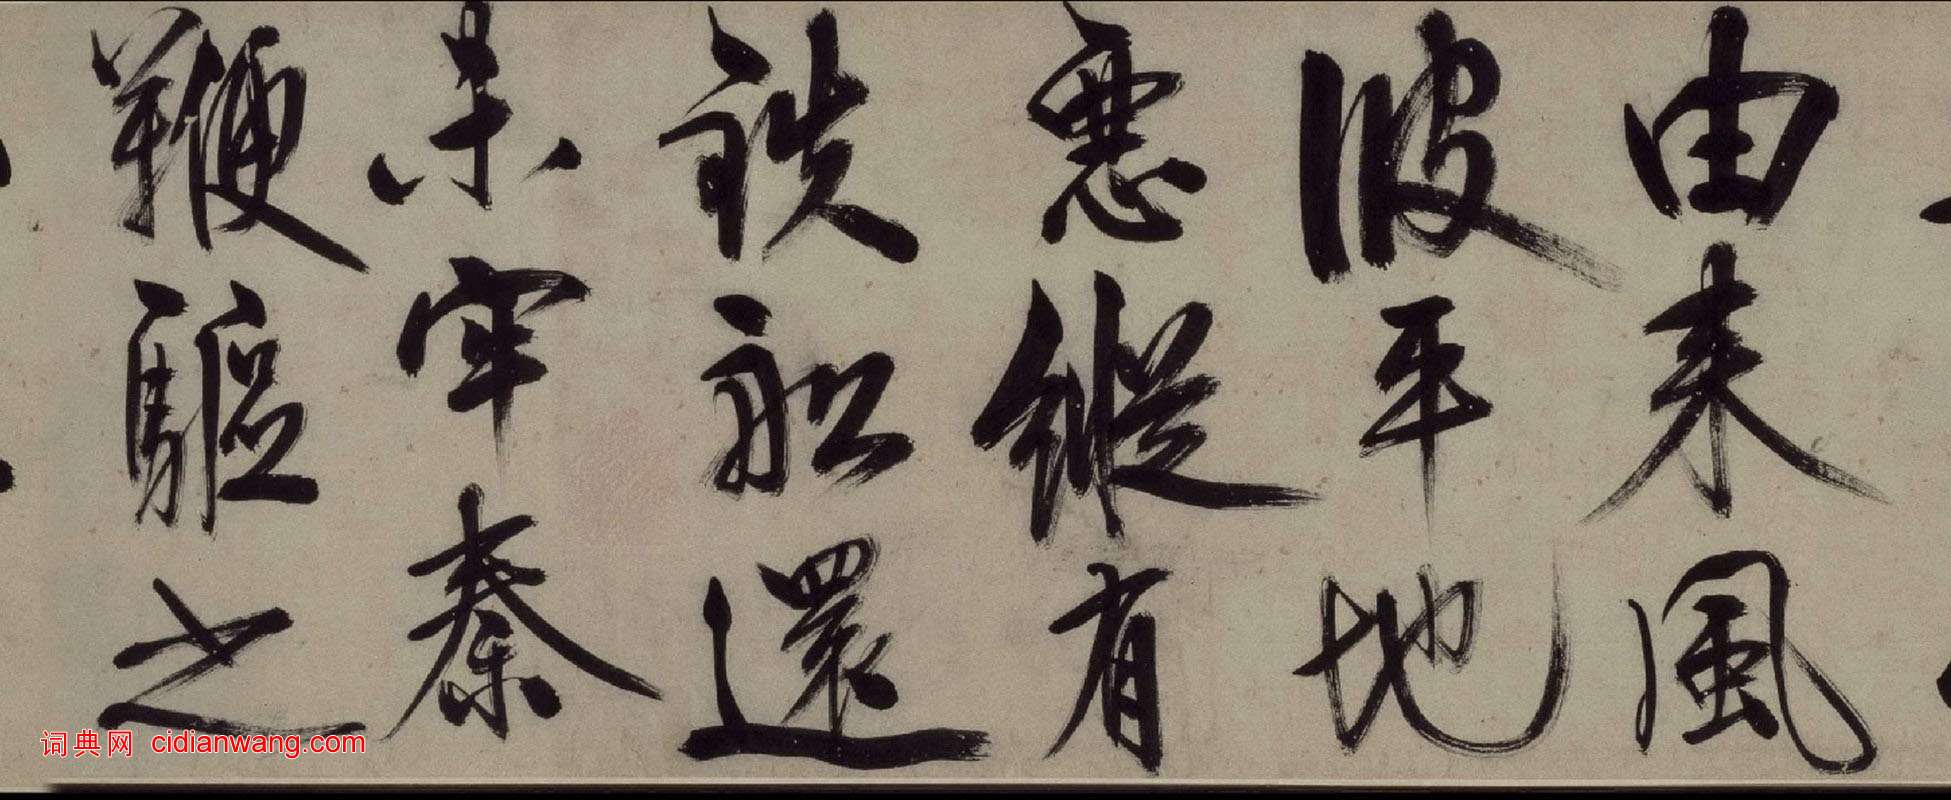 由来風
波平地
惡縱有
鉄舩還
未牢秦
鞭驅之
词典网 cidianwang.com